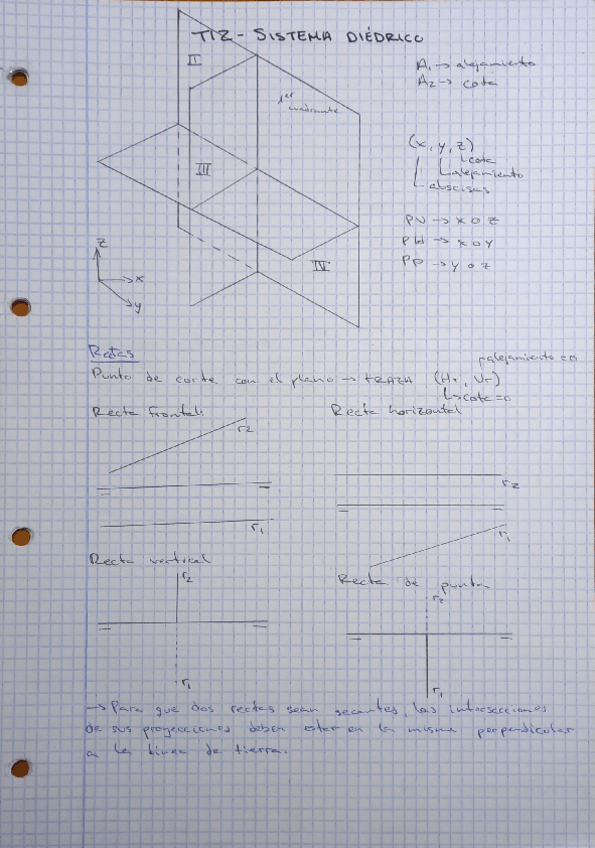 T12 - SISTEMA DIÉDRICO
A₁ → alejamiento
A₂ → cota
II
1er cuadrante
III
IV
(x, y, z)
cota
alejamiento
abscisas
PV → X O Z
PH → X O Y
PP → Y O Z
z
x
y
Rectas
alejamiento = 0
Punto de corte con el plano → TRAZA (Hr, Vr)
cota = 0
Recta frontal:
Recta horizontal
r2
r2
r1
r1
Recta vertical
Recta de punta
r2
r2
r1
r1
→ Para que dos rectas sean secantes, las intersecciones
de sus proyecciones deben estar en la misma perpendicular
a la línea de tierra.